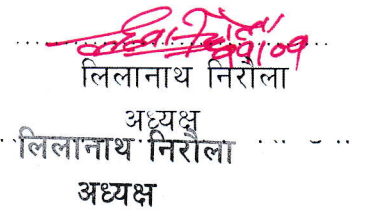 लिलानाथ निरौला
अध्यक्ष
लिलानाथ निरौला
अध्यक्ष